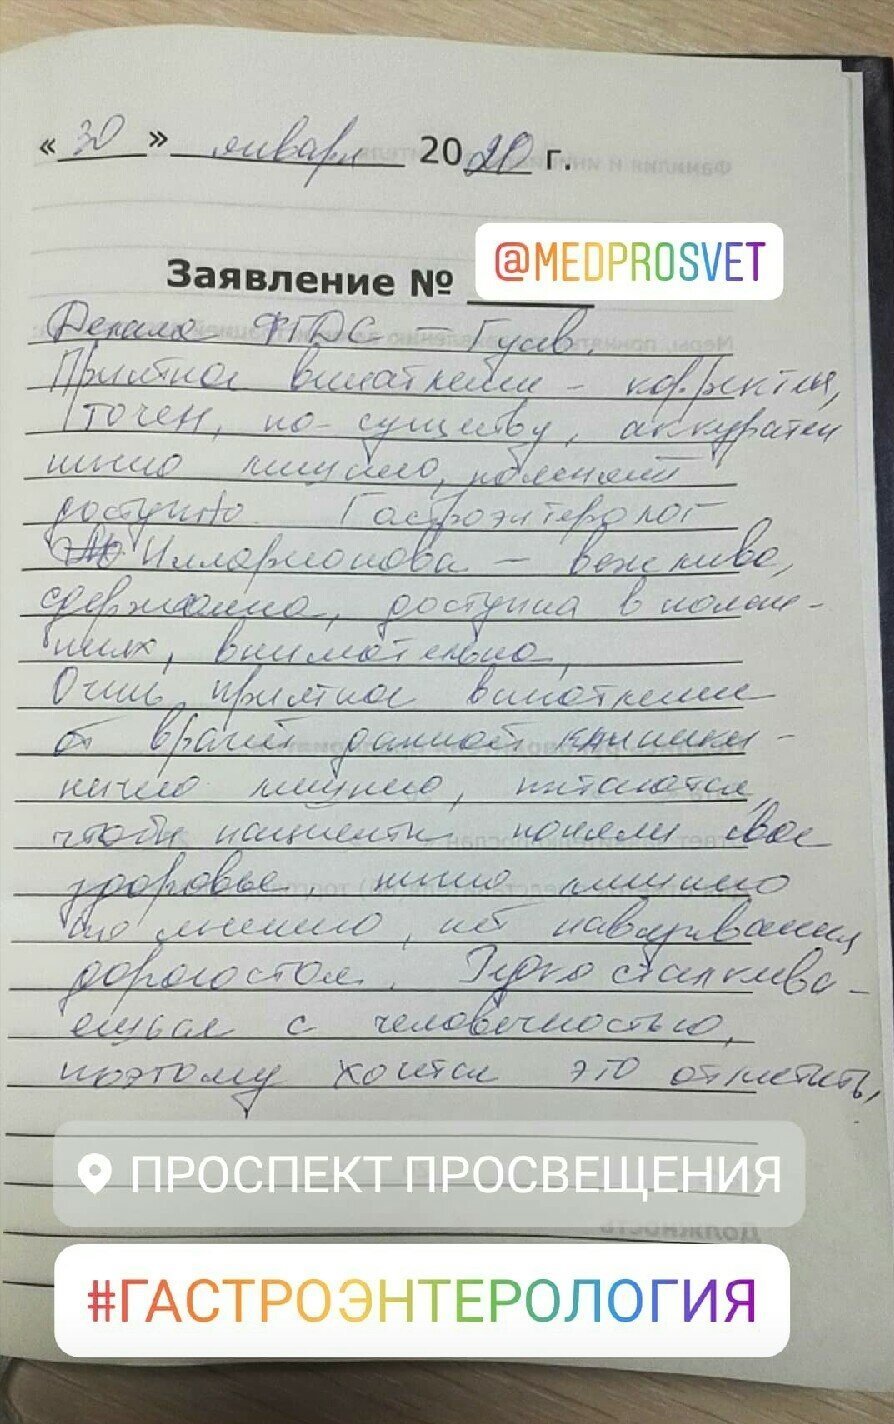 «30» января 2020 г.
@MEDPROSVET
Заявление №
Делала ФГДС – Гуив.
Приятное впечатление – корректен,
точен, по-существу, аккуратен
ничего лишнего, объясняет
доступно. Гастроэнтеролог
Илларионова – вежлива,
сдержанна, доступна в поясне-
ниях, внимательна,
Очень приятное впечатление
от врачей данной клиники –
ничего лишнего, пытаются,
чтобы пациенты поняли свое
здоровье, ничего лишнего
не менено, нет навязывания
дорогостоя. Редко сталкива-
ешься с человечностью,
поэтому хочется это отметить,
ПРОСПЕКТ ПРОСВЕЩЕНИЯ
#ГАСТРОЭНТЕРОЛОГИЯ